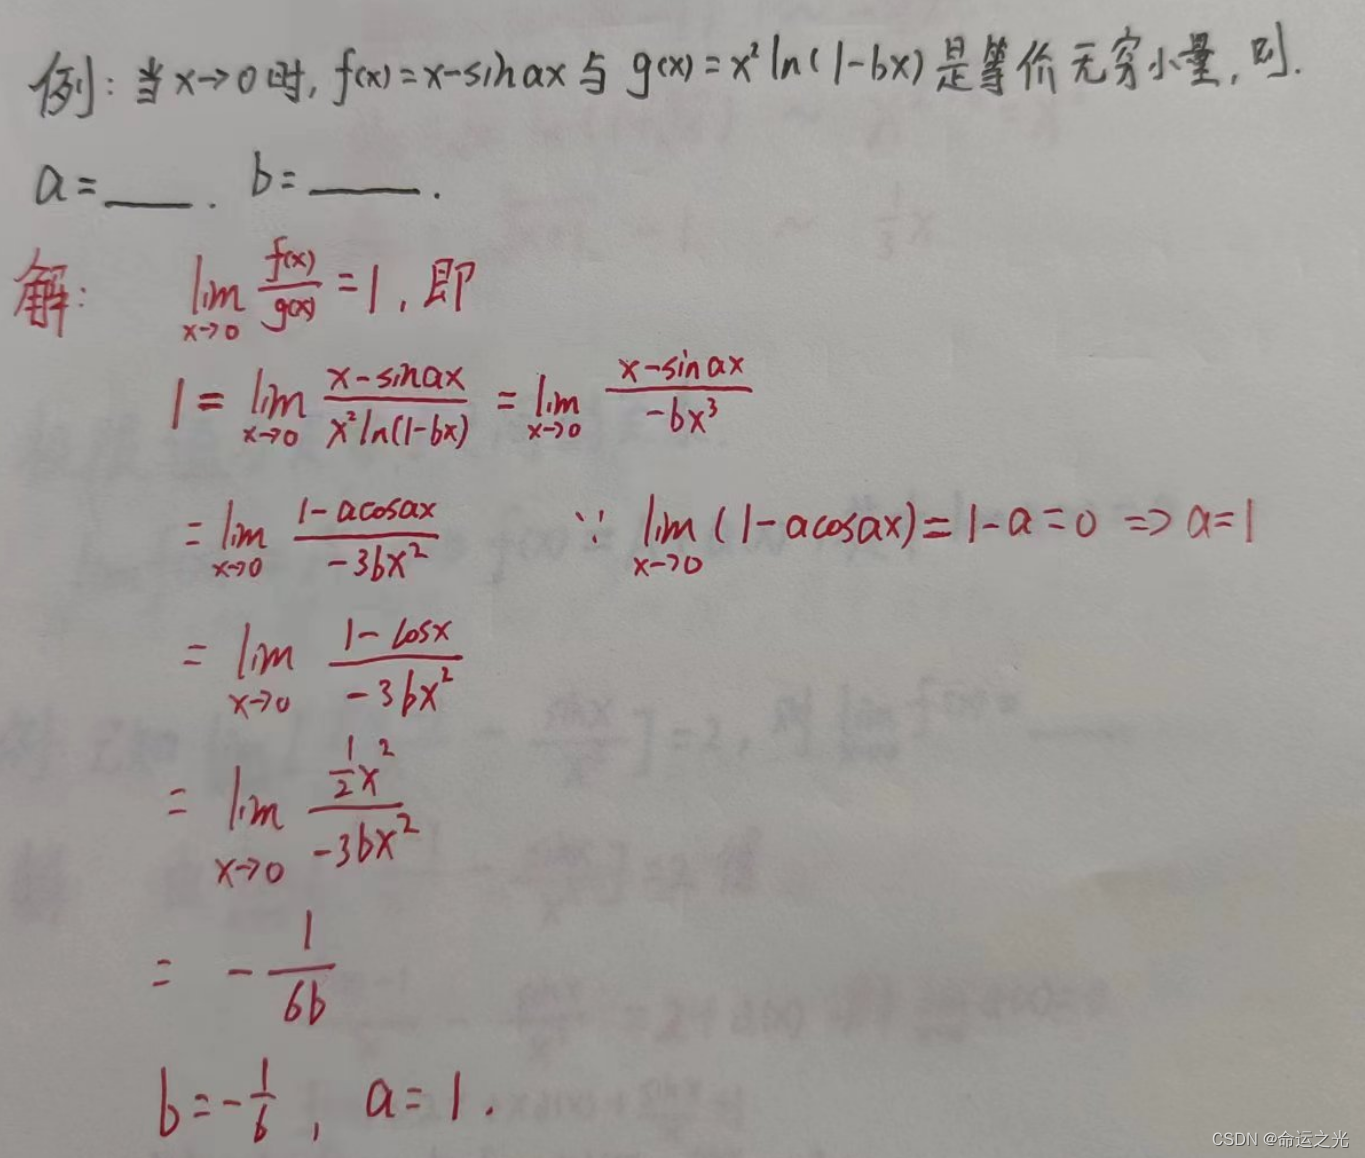 例: 当x→0时, f(x)=x-sinax与 g(x)=x²ln(1-bx)是等价无穷小量, 则.
a=___. b=____.
解: lim x→0 f(x)/g(x) =1, 即
1 = lim x→0 (x-sinax)/(x²ln(1-bx)) = lim x→0 (x-sinax)/(-bx³)
= lim x→0 (1-acosax)/(-3bx²) ∵ lim x→0 (1-acosax)=1-a=0 => a=1
= lim x→0 (1-cosx)/(-3bx²)
= lim x→0 (½x²)/(-3bx²)
= -1/6b
b=-1/6, a=1.
CSDN @命运之光